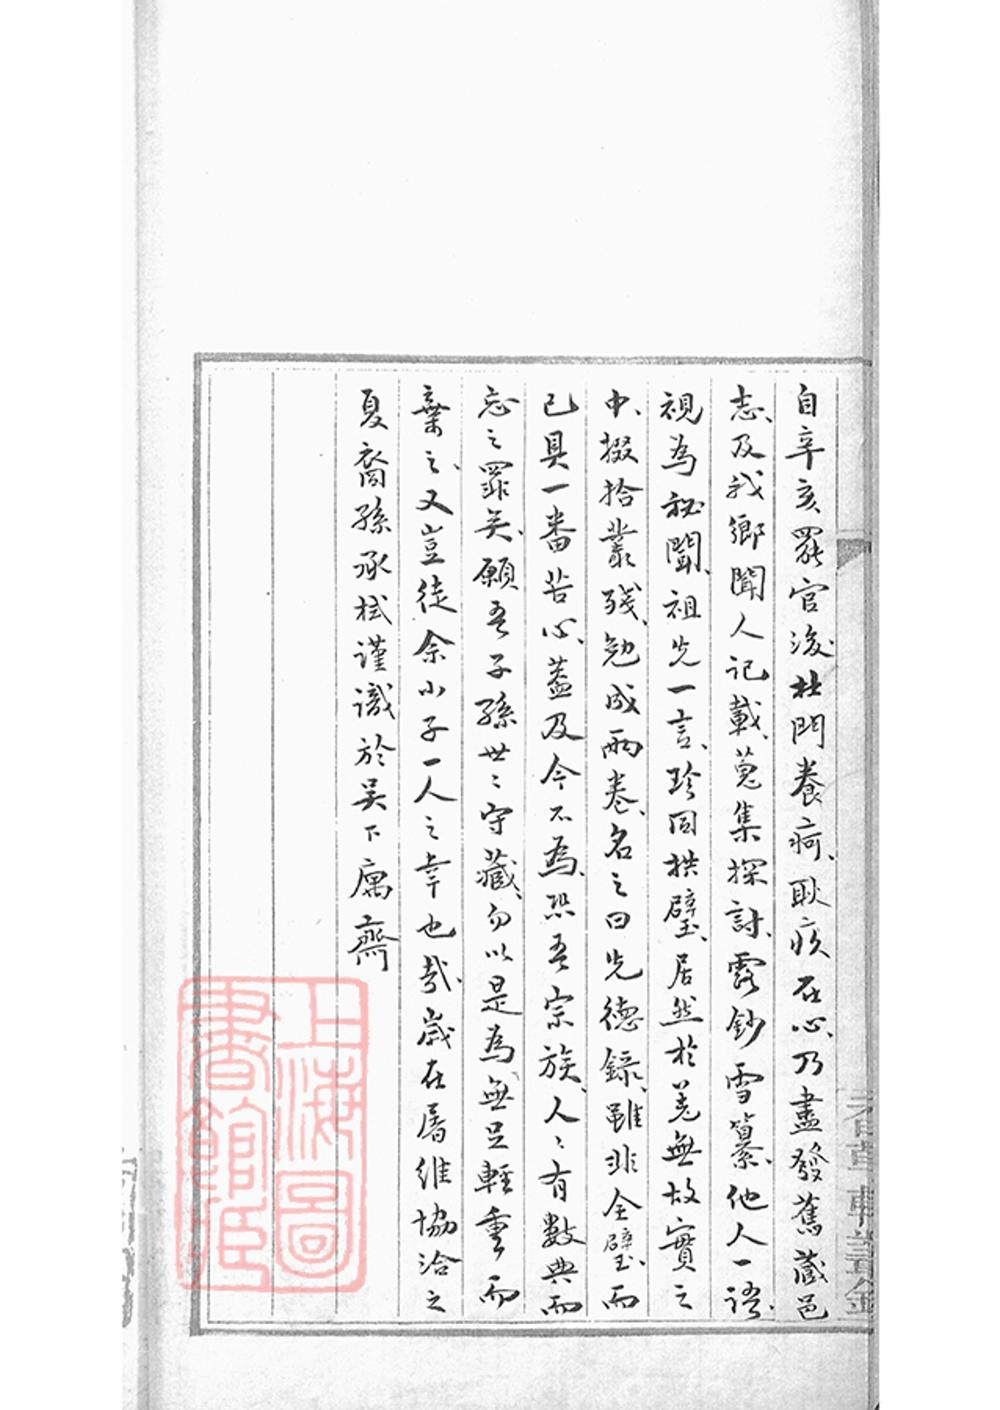 自辛亥罷官後杜門養疴、耿疚在心、乃盡發舊藏邑
志、及我鄉聞人記載、蒐集探討、露鈔雪纂、他人一語、
視為秘聞、祖先一言、珍同拱璧、居然於羌無故實之
中、掇拾叢殘、勉成兩卷、名之曰先德錄、雖非全璧、而
已具一番苦心、蓋及今不為、恐吾宗族、人〻有數典而
忘之罪矣、願吾子孫世〻守藏、勿以是為無足輕重而
棄之、又豈徒余小子一人之幸也哉、歲在屠維協洽之
夏裔孫承栻謹識於吳下寓齋
上海圖
書館臧